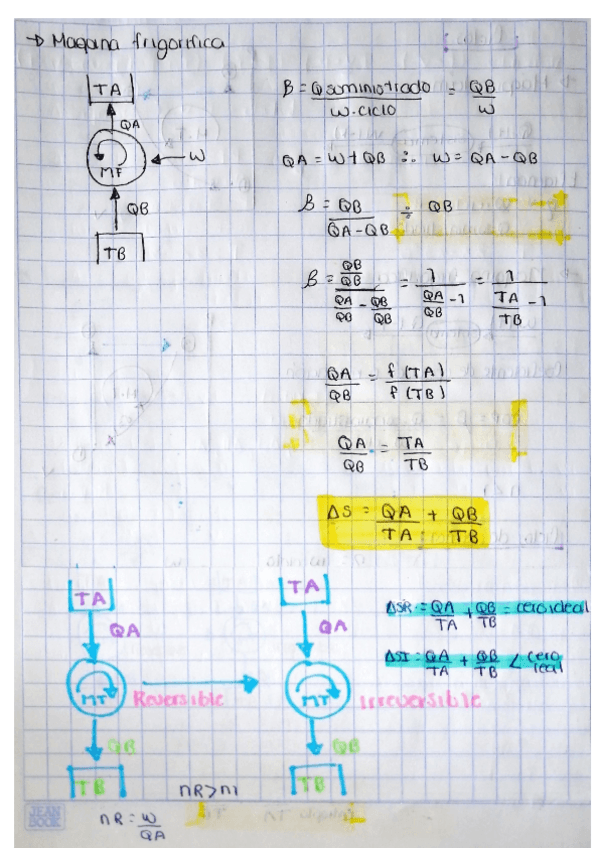 → Maquina frigorifica
TA
QA
MF
← W
QB
TB
B = Q suministrado / W. ciclo = QB / W
QA = W + QB ∴ W = QA - QB
β = QB / QA - QB ÷ QB
β = QB/QB / QA/QB - QB/QB = 1 / QA/QB - 1 = 1 / TA/TB - 1
QA / QB = f (TA) / f (TB)
QA / QB = TA / TB
ΔS = QA / TA + QB / TB
TA
QA
MT
Reversible
QB
TB
TA
QA
MT
Irreversible
QB
TB
ΔSR = QA / TA + QB / TB = cero ideal
ΔSI = QA / TA + QB / TB < cero real
nR>nI
nR = W / QA
JEAN BOOK